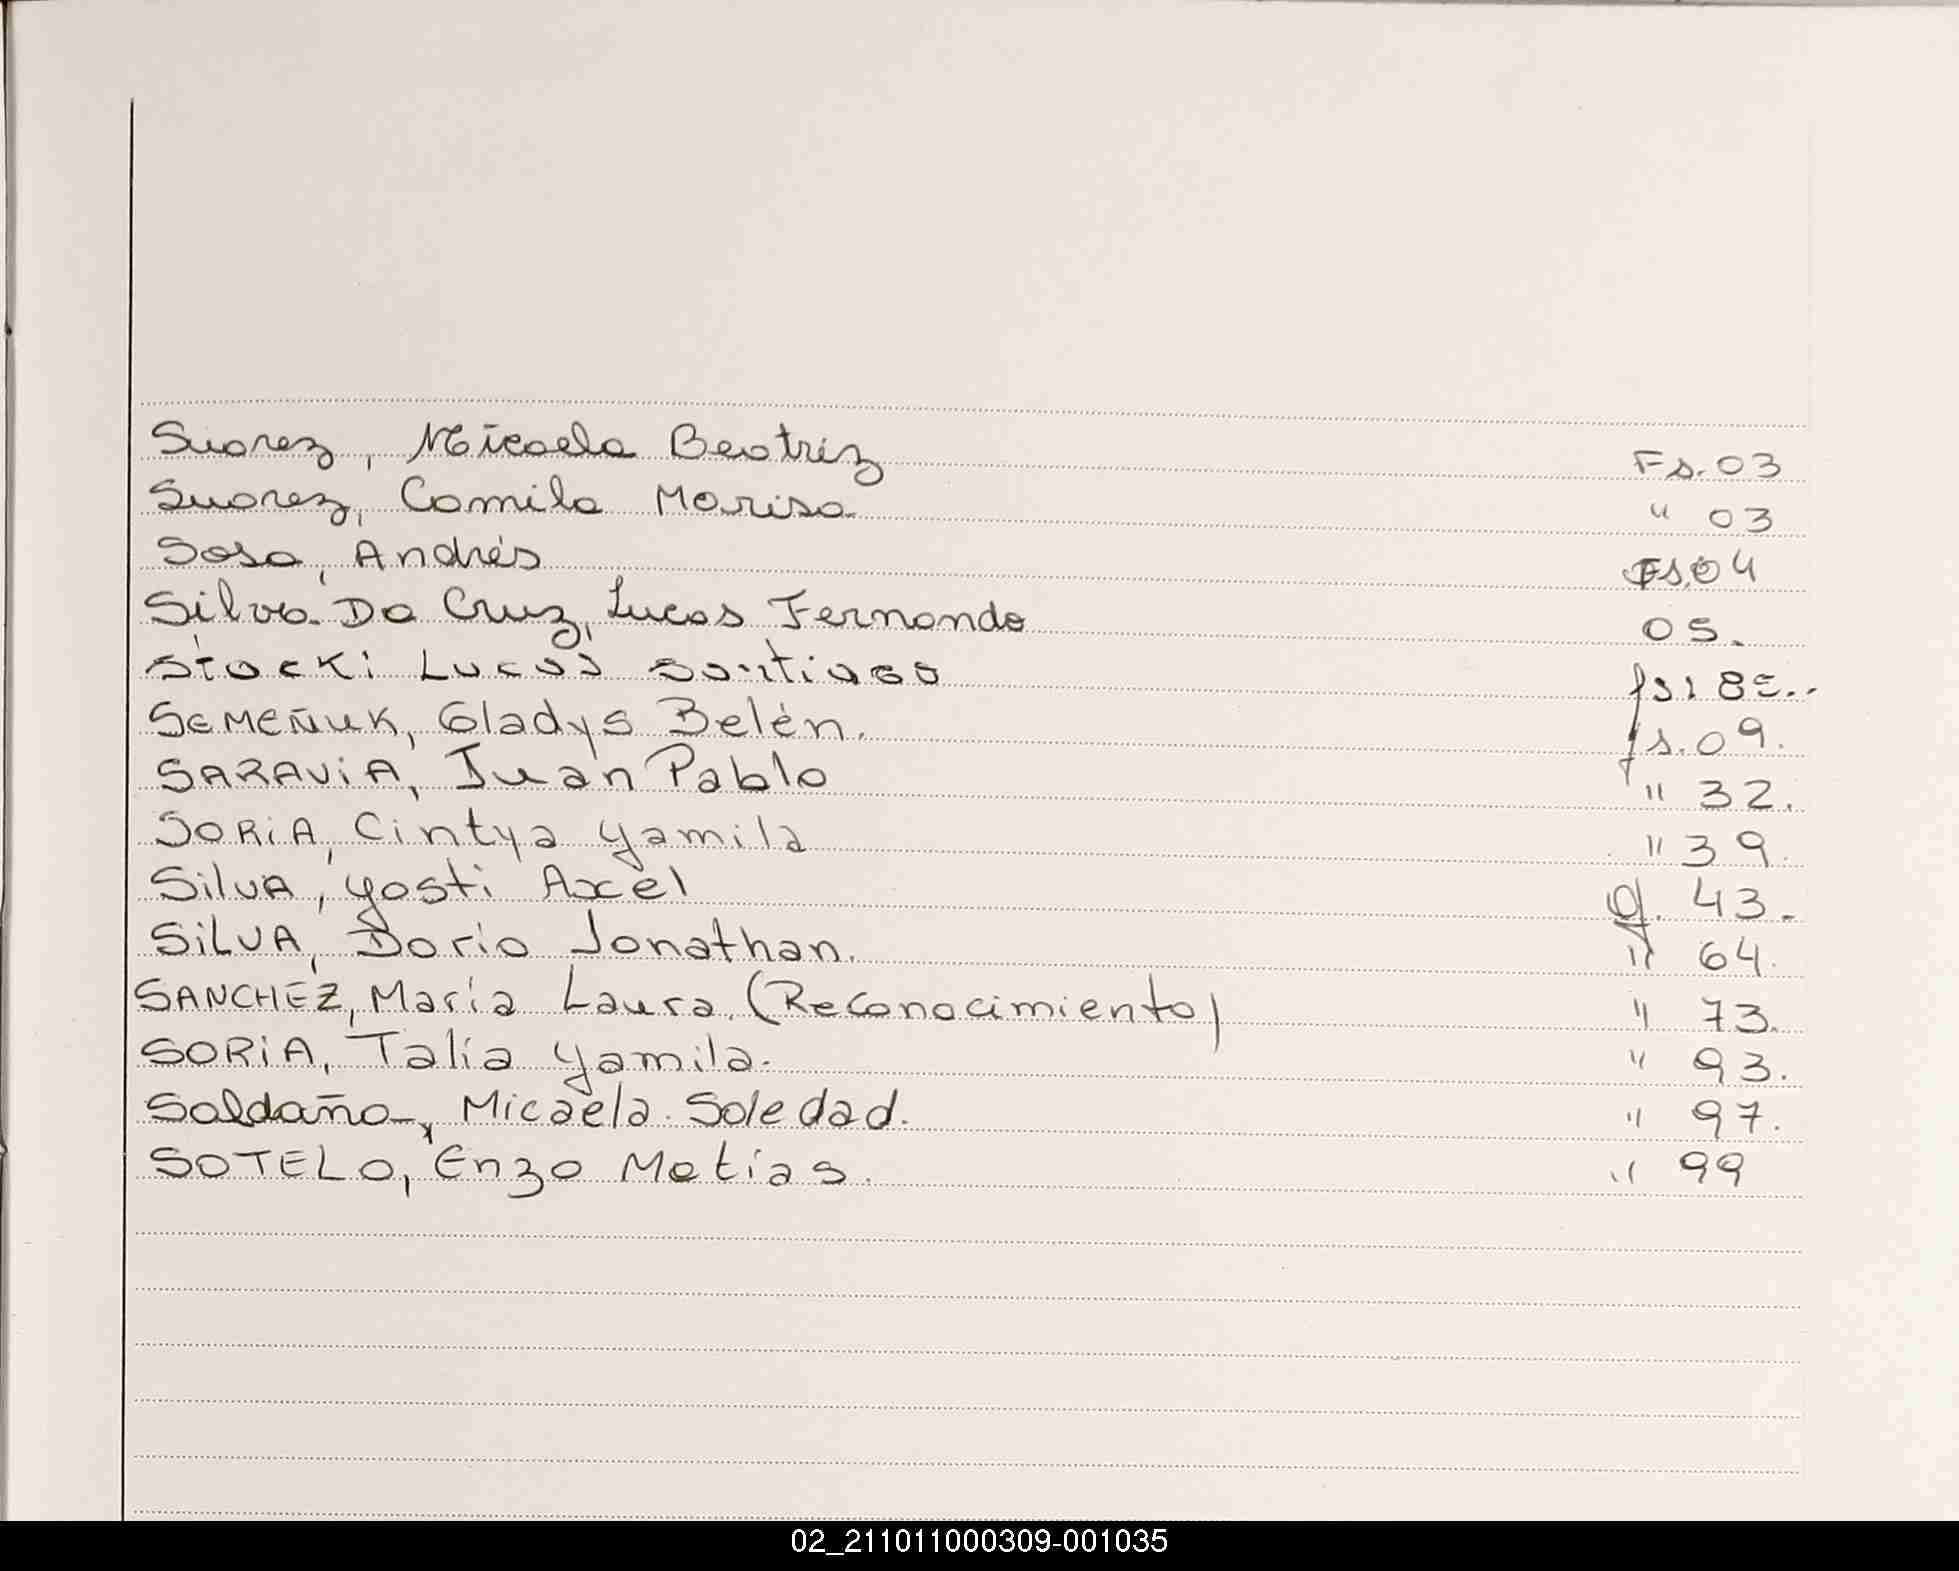 Suarez, Micaela Beatriz Fs. 03
Suarez, Camila Marisa " 03
Sosa, Andrés Fs. 04
Silva Da Cruz, Lucas Fernando 05.
Stocki Lucas Santiago
SEMEÑUK, Gladys Belén. fs. 09.
SARAViA, Juan Pablo " 32.
SORiA, Cintya Yamila " 39.
SilVA, Yosti Axel 43.
SiLVA, Dario Jonathan. " 64.
SANCHEZ, María Laura. (Reconocimiento) " 73.
SORiA, Talía Yamila. " 93.
Saldaño, Micaela Soledad. " 97.
SOTELO, Enzo Matías. " 99
02_211011000309-001035